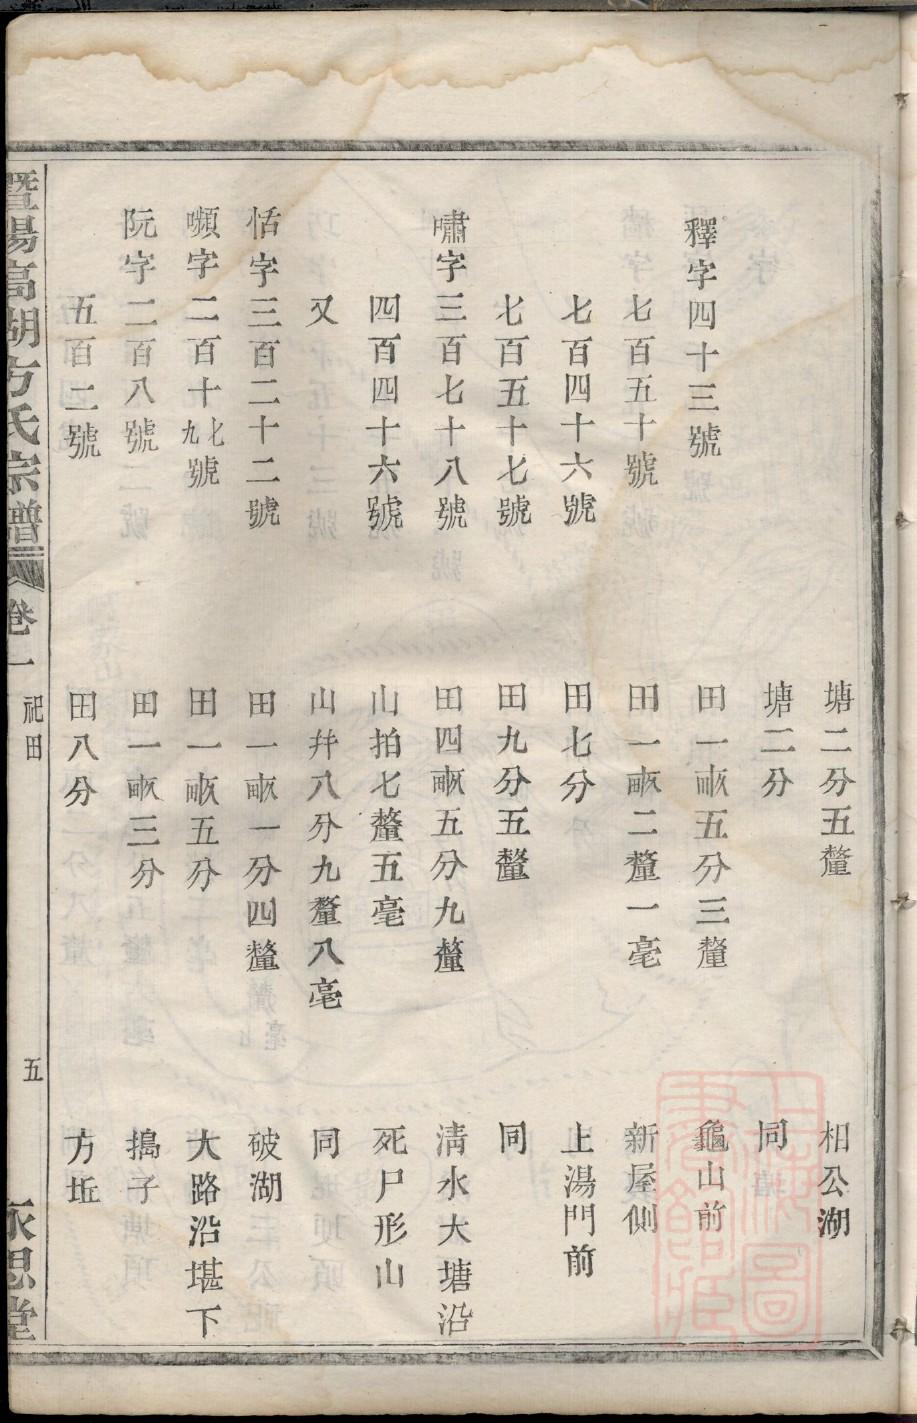 塘二分五釐 相公湖
塘二分 同
釋字四十三號 田一畝五分三釐 龜山前
七百五十號 田一畝二釐一毫 新屋側
七百四十六號 田七分 上湯門前
七百五十七號 田九分五釐 同
嘯字三百七十八號 田四畝五分九釐 清水大塘沿
四百四十六號 山拍七釐五毫 死尸形山
又 山幷八分九釐八毫 同
恬字三百二十二號 田一畝一分四釐 破湖
嚬字二百十七九號 田一畝五分 大路沿堪下
阮字二百八號 田一畝三分 搗子
五百二號 田八分 方坵
暨陽高湖方氏宗譜 卷一 祀田 五 永思堂
上海圖書館藏